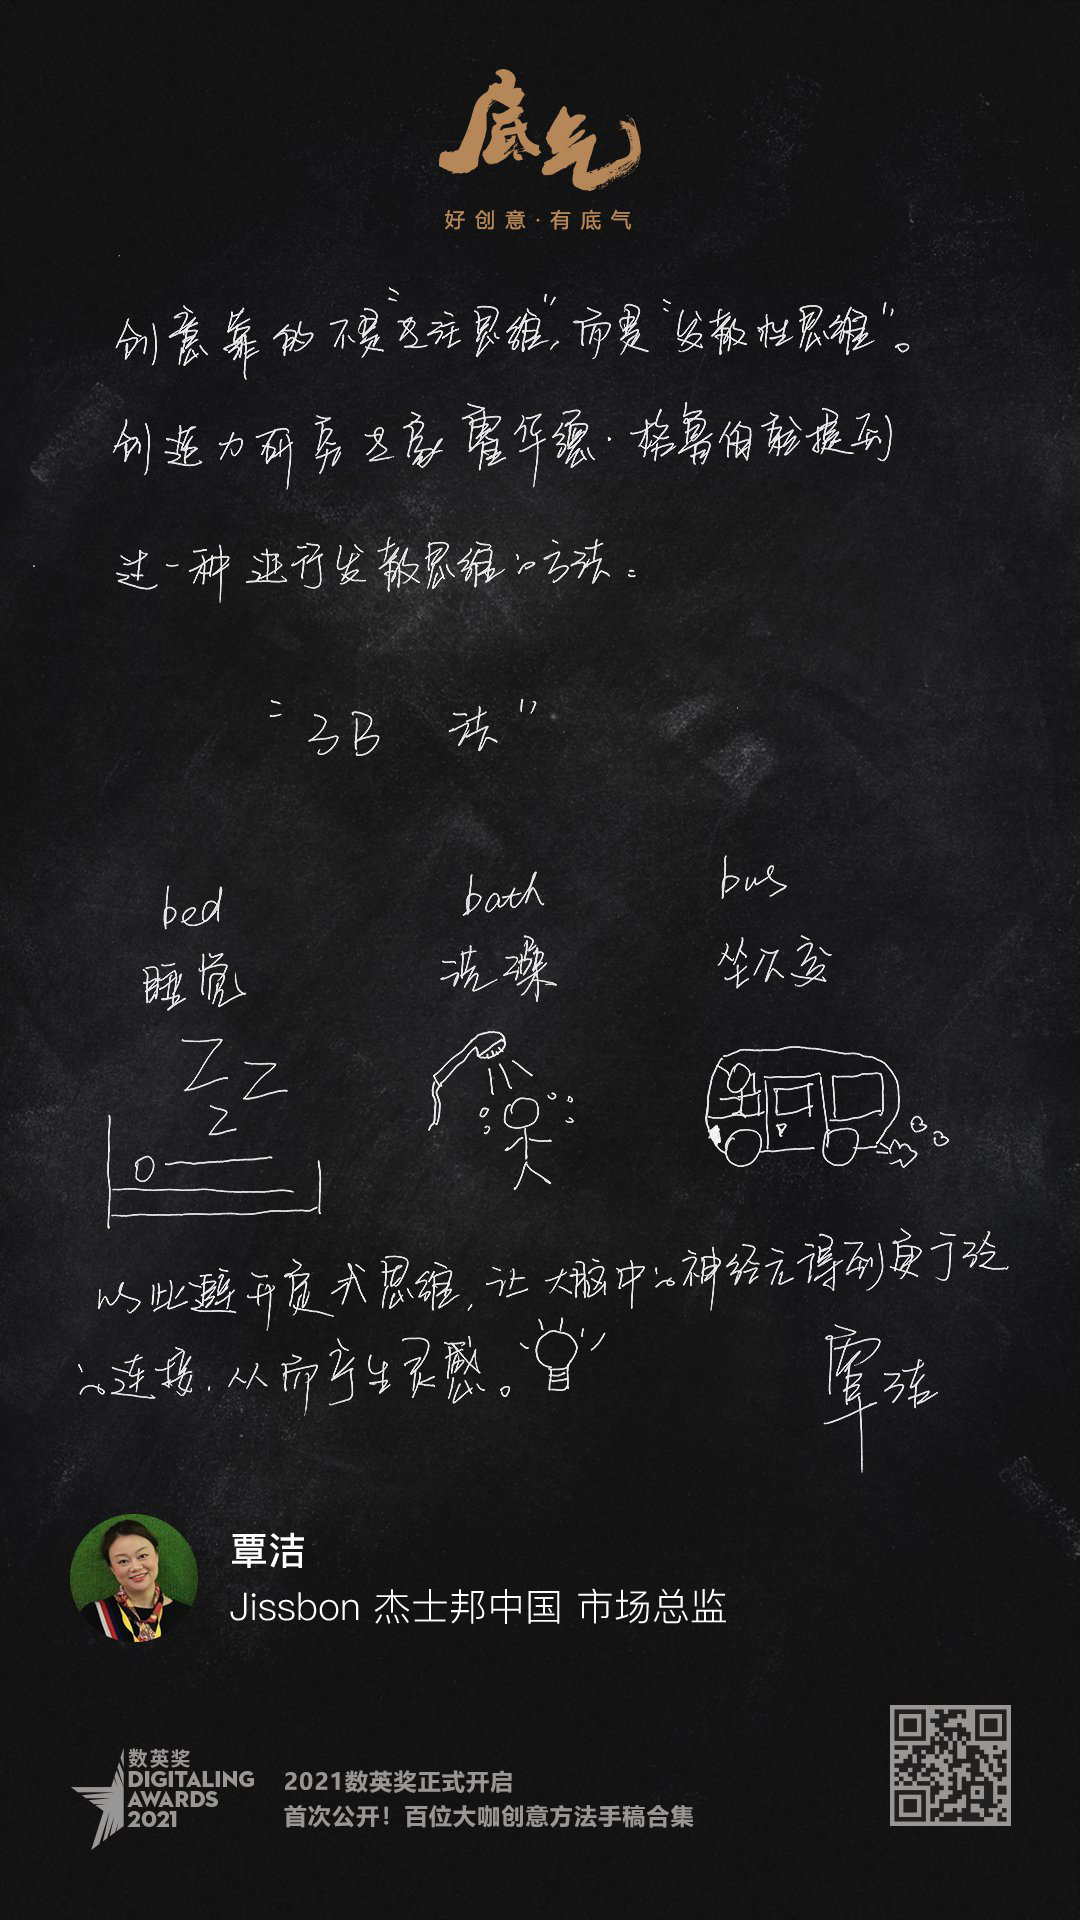 底气
好创意·有底气
创意靠的不是“专注思维”，而是“发散性思维”。
创造力研究专家霍华德·格鲁伯就提到
过一种进行发散思维的方法：
“3B 法”
bed
bath
bus
睡觉
洗澡
坐公交
Z Z
Z
以此避开定式思维，让大脑中的神经元得到更广泛
的连接，从而产生灵感。
覃洁
覃洁
Jissbon 杰士邦中国 市场总监
数英奖
DIGITALING
AWARDS
2021
2021数英奖正式开启
首次公开！百位大咖创意方法手稿合集